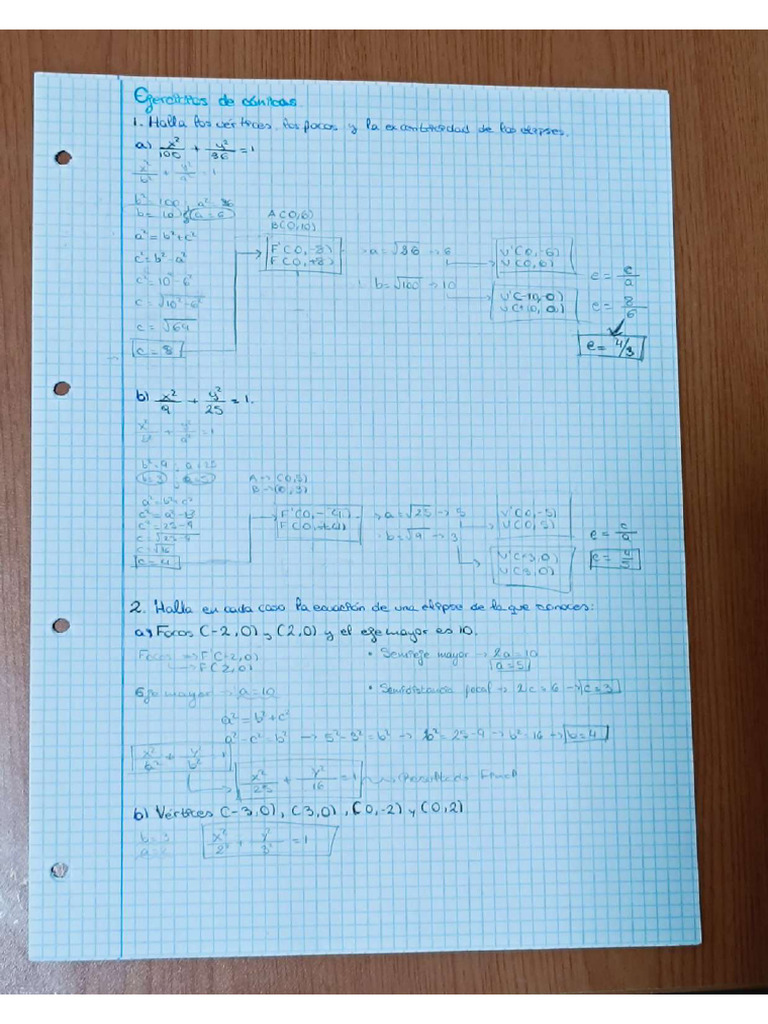 Ejercicios de cónicas
1. Halla los vértices, los focos y la excentricidad de las elipses.
a) x²/100 + y²/36 = 1
x²/b² + y²/a² = 1
b² = 100, a² = 36
b = 10 a = 6
A (0,6)
B (0,10)
a² = b² + c²
c² = b² - a²
c² = 10² - 6²
c = √10² - 6²
c = √64
c = 8
F'(0,-8)
F(0,+8)
a = √36 → 6
b = √100 → 10
V'(0,-6)
V(0,6)
V'(-10,0)
V(+10,0)
e = c/a
e = 8/6
e = 4/3
b) x²/9 + y²/25 = 1.
x²/b² + y²/a² = 1
b² = 9, a = 25
b = 3, a = 5
A → (0,5)
B → (0,3)
a² = b² + c²
c² = a² - b²
c² = 25 - 9
c = √25 - 9
c = √16
c = 4
F'(0,-4)
F(0,+4)
→ a = √25 → 5
b = √9 → 3
V'(0,-5)
V(0,5)
V'(-3,0)
V(3,0)
e = c/a
e = 4/5
2. Halla en cada caso la ecuación de una elipse de la que conoces:
a) Focos (-2,0) y (2,0) y el eje mayor es 10.
Focos → F'(-2,0)
→ F(2,0)
• Semieje mayor → 2a = 10
a = 5
Eje mayor → a = 10
• Semidistancia focal → 2c = 6 → c = 3
a² = b² + c²
a² - c² = b² → 5² - 3² = b² → b² = 25 - 9 → b² = 16 → b = 4
x²/a² + y/b² 1
x²/25 + y²/16 = 1 → Resultado Final
b) Vértices (-3,0), (3,0), (0,-2) y (0,2)
b = 3
a = 2
x²/2² + y²/3² = 1